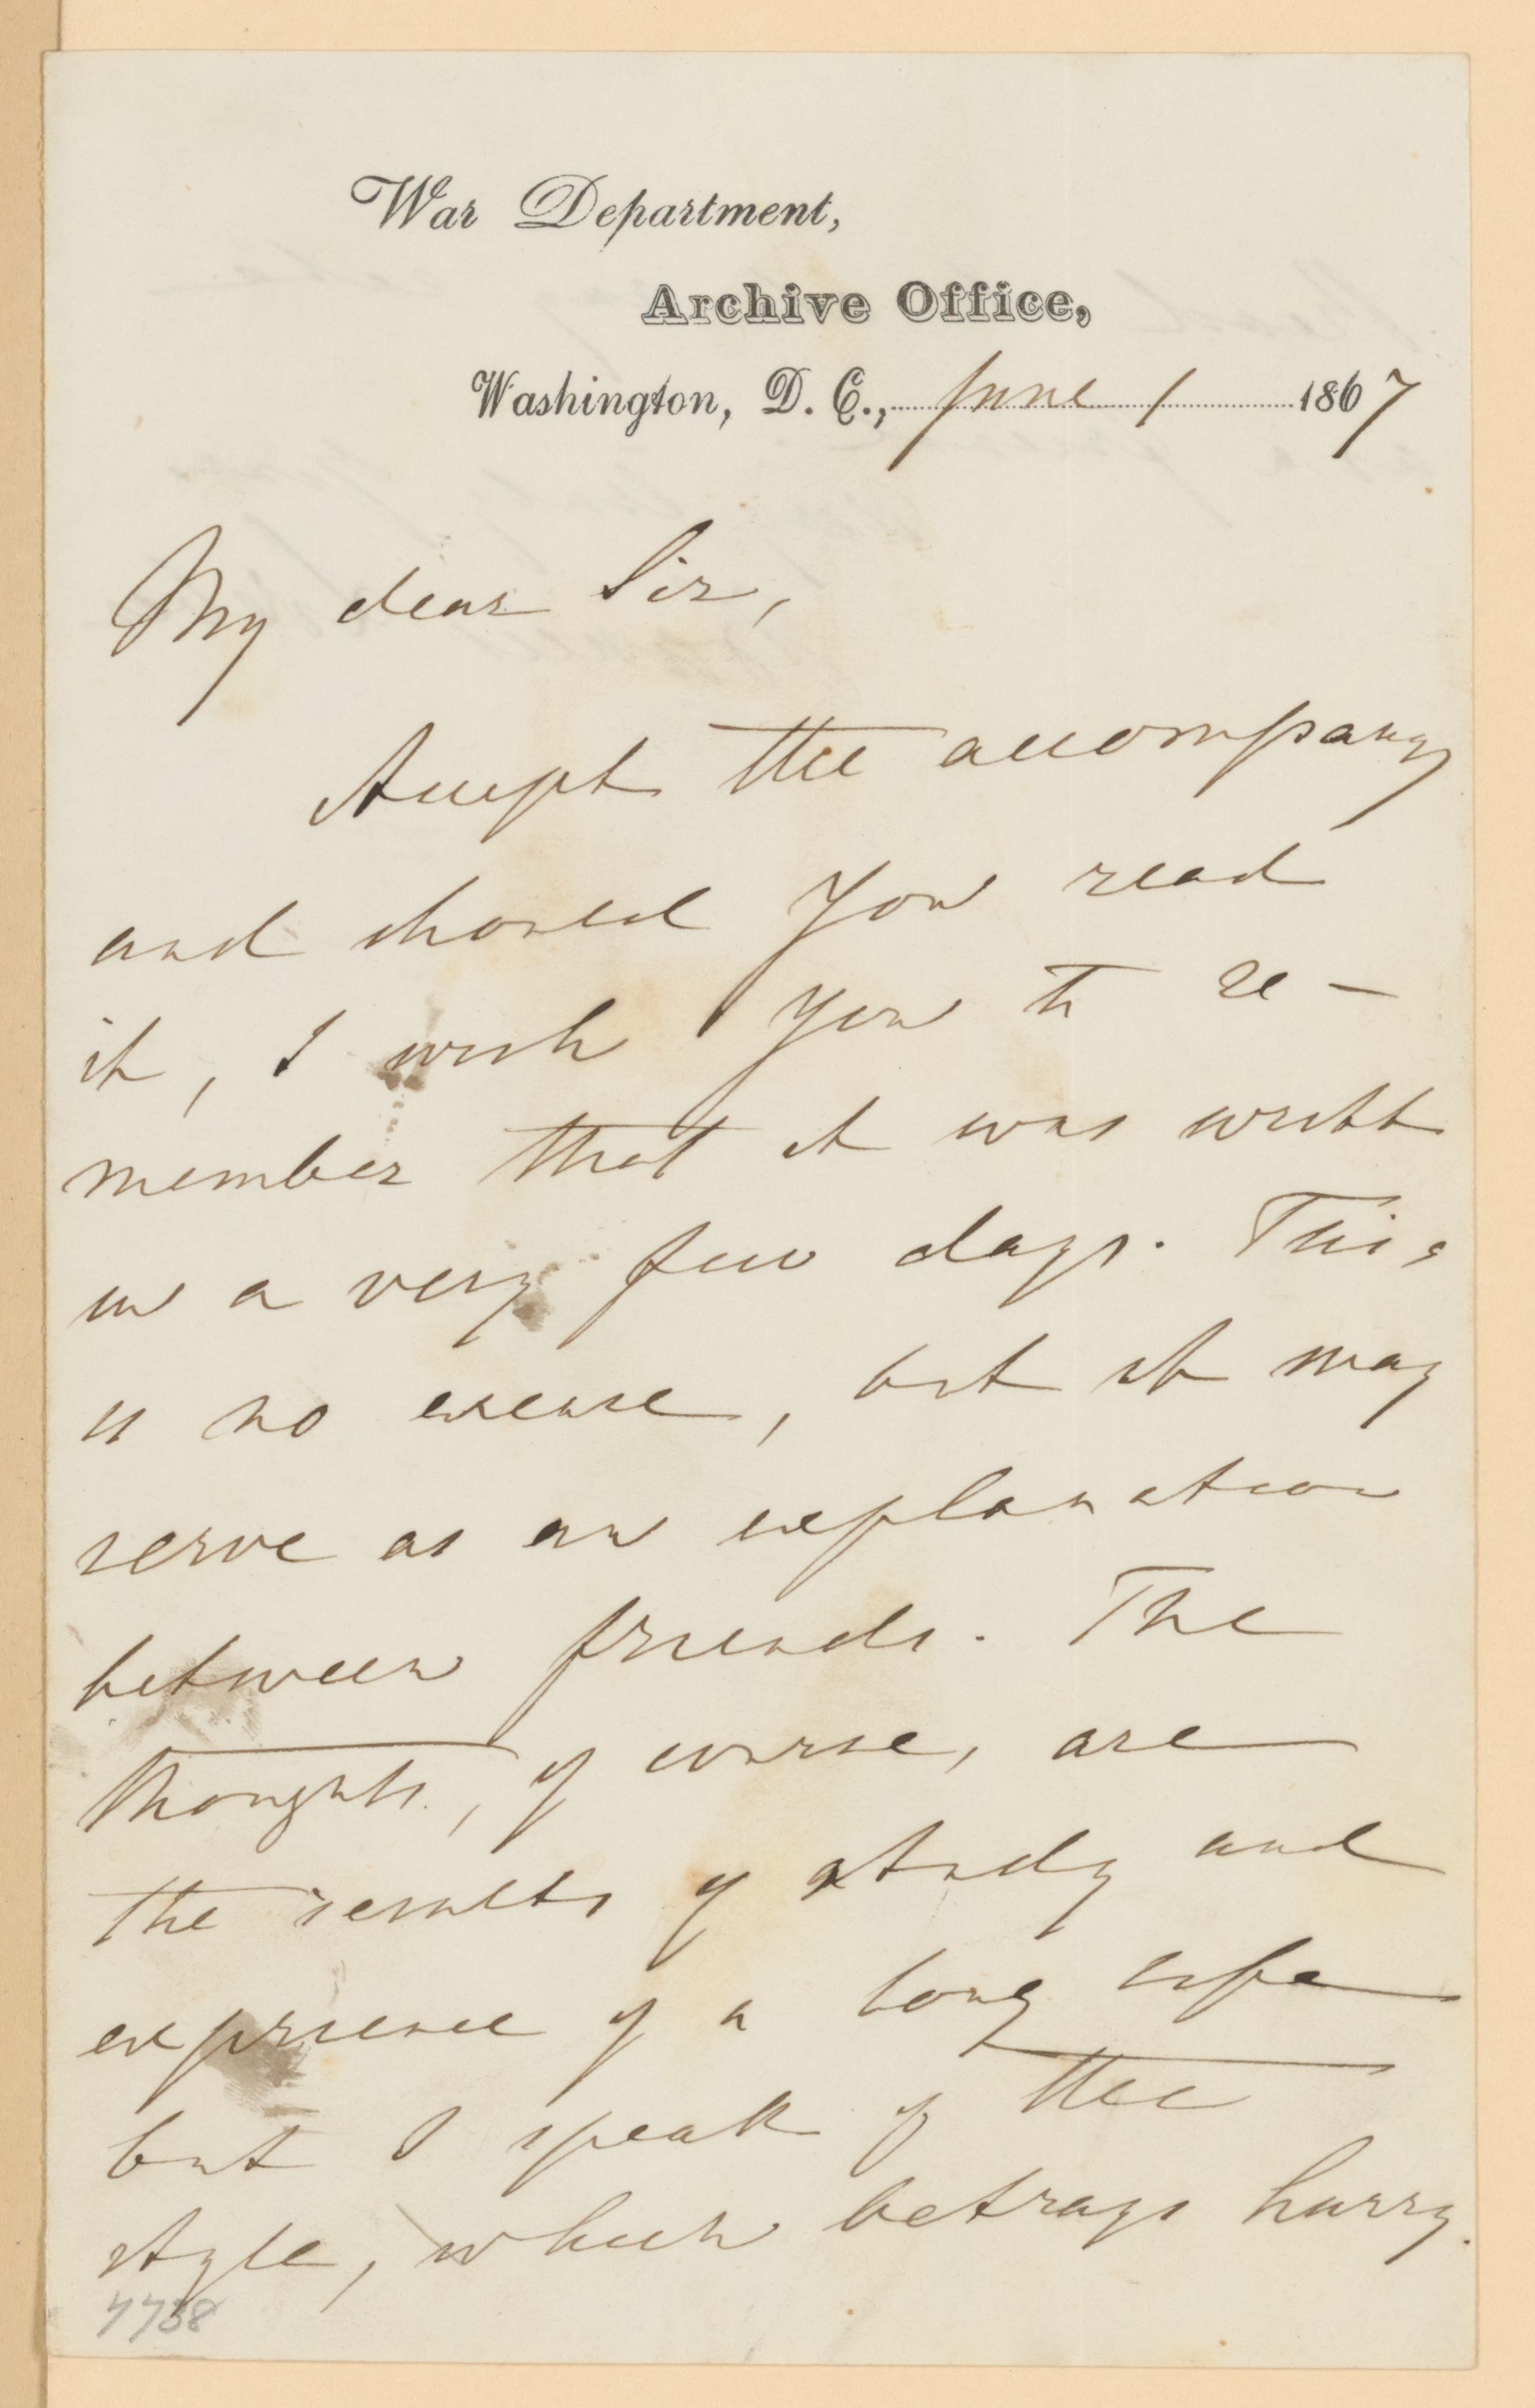 War Department,
Archive Office,
Washington, D. C., June 1 1867
My dear Sir,
Accept the accompany
and should you read
it, I wish you to re-
member that it was writt
in a very few days. This
is no excuse, but it may
serve as an explanation
between friends. The
thoughts, of course, are
the results of study and
exprience of a long life
but I speak of the
style, which betrays hurry.
7738